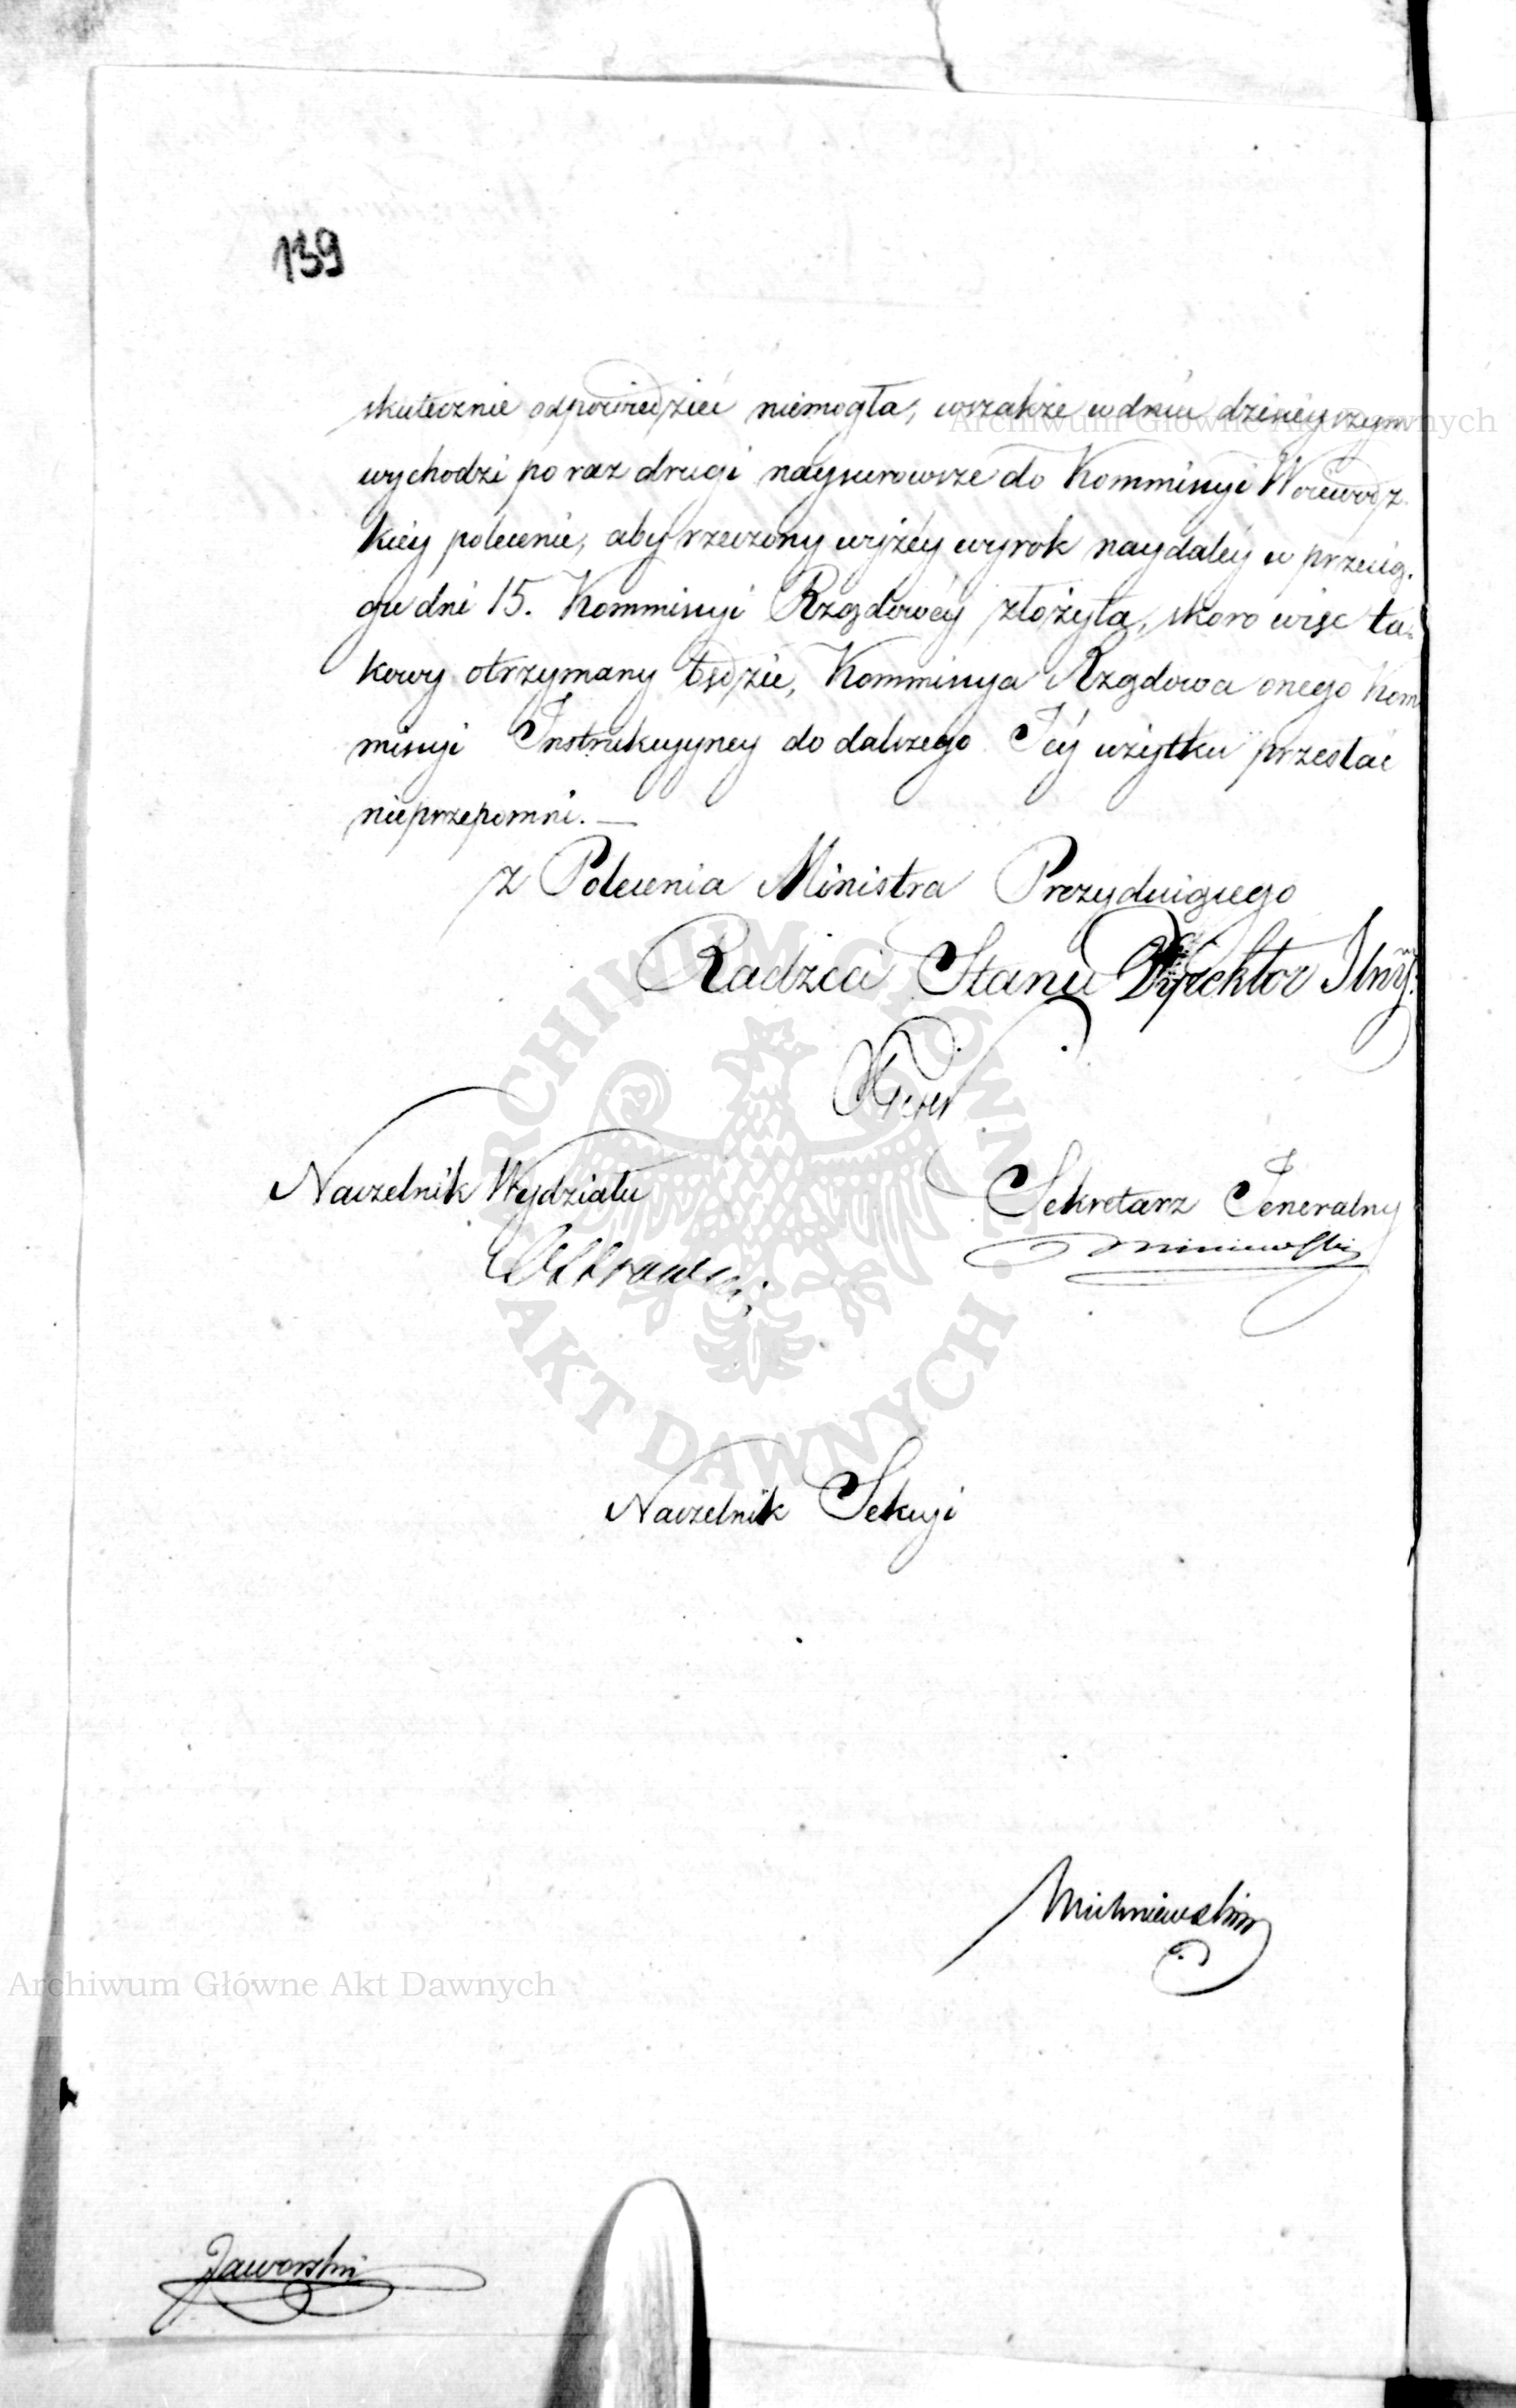 139
skutecznie odpowiedzieć niemogła, wszakże w dniu dzisieyszym
wychodzi po raz drugi naysurowsze do Kommissyi Woiewodz
kiéy polecenie, aby rzeczony wyżéy wyrok naydaléy w przecią-
gu dni 15. Kommissyi Rządowéy złożyła, skoro więc ta-
kowy otrzymany będzie, Kommissya Rządowa onego Kom
missyi Instrukcyyney do dalszego Jéy użytku przesłać
nieprzepomni. —
z Polecenia Ministra Prezyduiącego
Radzca Stanu Dyrektor Jlny.
Naczelnik Wydziału
Sekretarz Jeneralny
Naczelnik Sekcyi
Michniewski
Jaworski
Archiwum Główne Akt Dawnych
Archiwum Główne Akt Dawnych
ARCHIWUM GŁÓWNE AKT DAWNYCH